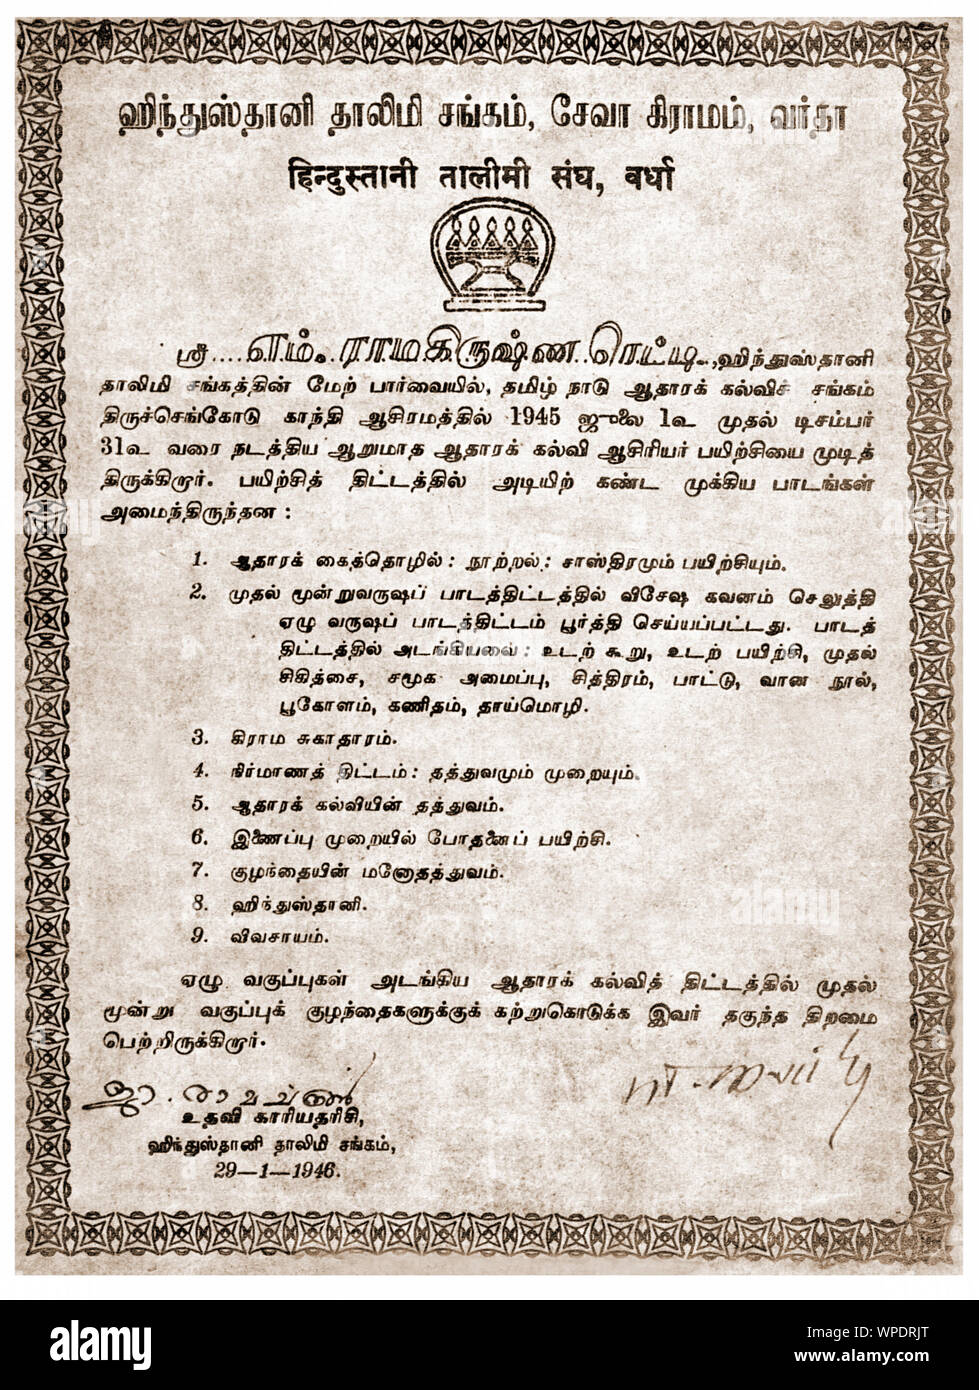 ஹிந்துஸ்தானி தாலிமி சங்கம், சேவா கிராமம், வர்தா
हिन्दुस्तानी तालीमी संघ, वर्धा
ஸ்ரீ....எம். ராமகிருஷ்ண ரெட்டி..,ஹிந்துஸ்தானி
தாலிமி சங்கத்தின் மேற் பார்வையில், தமிழ் நாடு ஆதாரக் கல்விச் சங்கம்
திருச்செங்கோடு காந்தி ஆசிரமத்தில் 1945 ஜுலை 1௳ முதல் டிசம்பர்
31௳ வரை நடத்திய ஆறுமாத ஆதாரக் கல்வி ஆசிரியர் பயிற்சியை முடித்
திருக்கிறார். பயிற்சித் திட்டத்தில் அடியிற் கண்ட முக்கிய பாடங்கள்
அமைந்திருந்தன :
1. ஆதாரக் கைத்தொழில் : நூற்றல் : சாஸ்திரமும் பயிற்சியும்.
2. முதல் மூன்றுவருஷப் பாடத்திட்டத்தில் விசேஷ கவனம் செலுத்தி
ஏழு வருஷப் பாடத்திட்டம் பூர்த்தி செய்யப்பட்டது. பாடத்
திட்டத்தில் அடங்கியவை : உடற் கூறு, உடற் பயிற்சி, முதல்
சிகித்சை, சமூக அமைப்பு, சித்திரம், பாட்டு, வான நூல்,
பூகோளம், கணிதம், தாய்மொழி.
3. கிராம சுகாதாரம்.
4. நிர்மாணத் திட்டம் : தத்துவமும் முறையும்.
5. ஆதாரக் கல்வியின் தத்துவம்.
6. இணைப்பு முறையில் போதனைப் பயிற்சி.
7. குழந்தையின் மனோதத்துவம்.
8. ஹிந்துஸ்தானி.
9. விவசாயம்.
ஏழு வகுப்புகள் அடங்கிய ஆதாரக் கல்வித் திட்டத்தில் முதல்
மூன்று வகுப்புக் குழந்தைகளுக்குக் கற்றுகொடுக்க இவர் தகுந்த திறமை
பெற்றிருக்கிறார்.
உதவி காரியதரிசி,
ஹிந்துஸ்தானி தாலிமி சங்கம்,
29—1—1946.
alamy
Image ID: WPDRJT
www.alamy.com